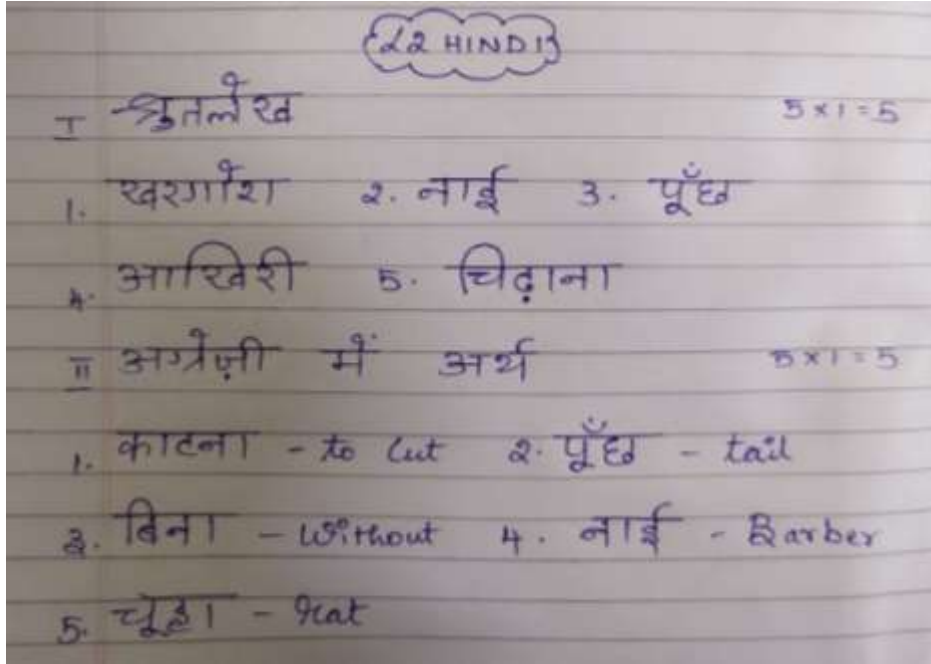 L2 HINDI
I श्रुतलेख 5 x 1 = 5
1. खरगोश 2. नाई 3. पूँछ
4. आखिरी 5. चिढ़ाना
II अग्रेज़ी में अर्थ 5 x 1 = 5
1. काटना - to cut 2. पूँछ - tail
3. बिना - Without 4. नाई - Barber
5. चूहा - rat